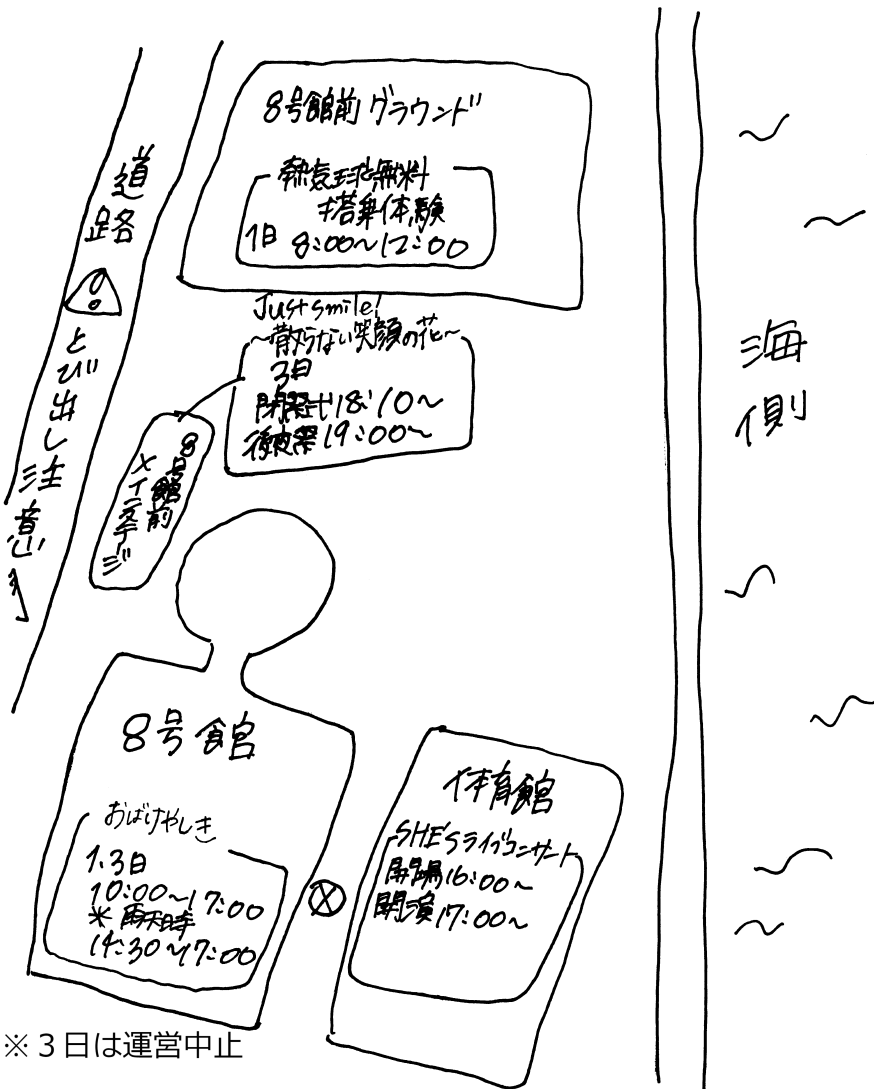 8号館前グラウンド
熱気球無料
搭乗体験
1日 8:00～12:00
道路
とび出し注意
Just smile!
～散らない笑顔の花～
3日
閉祭式18:10～
後夜祭19:00～
8号館前
メインステージ
海側
8号館
おばけやしき
1.3日
10:00～17:00
* 雨天時
14:30～17:00
体育館
SHE'Sライブコンサート
開場16:00～
開演17:00～
※３日は運営中止